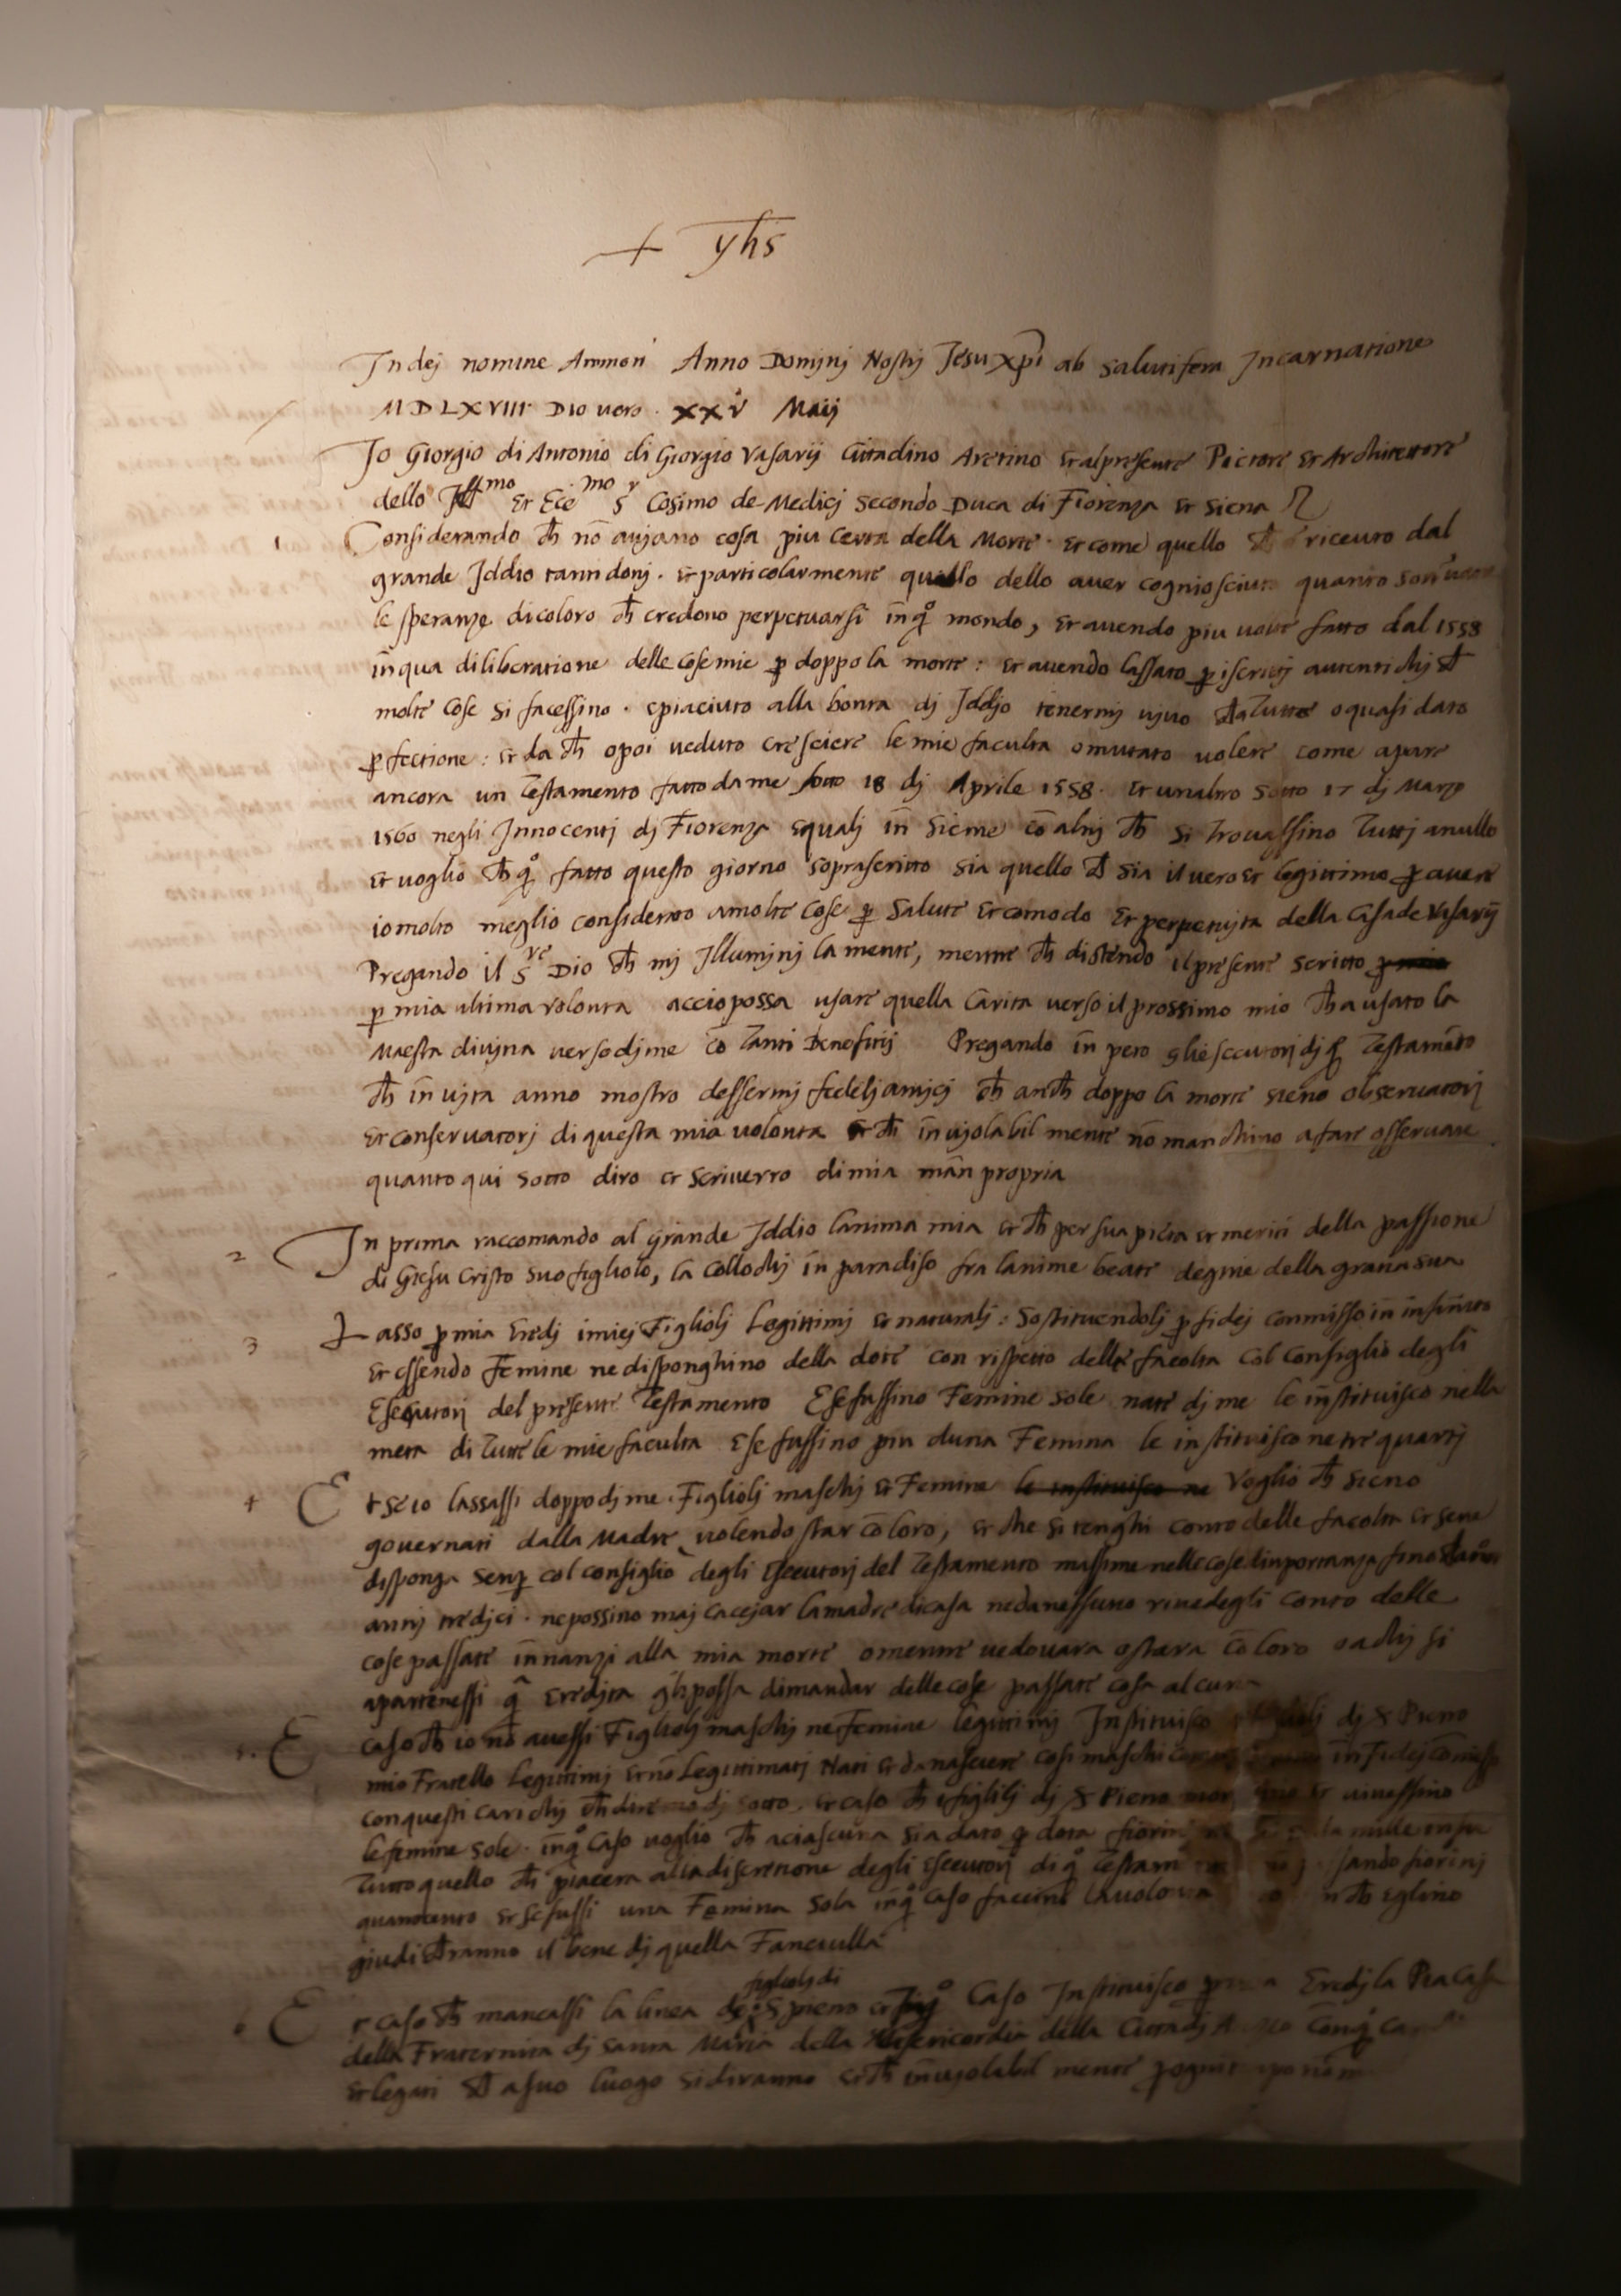 + yhs
In dej nomine Ammen Anno Dominj Nostrj Jesu Xpi ab salutifera Incarnatione
MDLXVIII Die vero XXV Maij
Io Giorgio di Antonio di Giorgio Vasarij Cittadino Aretino et al presente Pictore et Architettore
dello Ill^mo et Ecc^mo S^r Cosimo de Medicj secondo Duca di Fiorenza et Siena
1 Considerando ch nō aviano cosa piu certa della Morte. et come quello ch riceuto dal
grande Iddio tanti donj. et particolarmente quello dello aver cognosciuto quanto son vane
le speranze di coloro ch credono perpetuarsi in qo mondo, et avendo piu volte fatto dal 1558
in qua diliberatione delle cose mie p doppo la morte: et avendo lassato p iscritti autentichj ch
molte cose si facessino. e piaciuto alla bonta dj Iddio tenermj vivo ch a tutte o quasi dato
pfectione: et da ch o poi veduto cresciere le mie faculta o mutato volere come apare
ancora un testamento fatto da me sotto 18 dj Aprile 1558. et un altro sotto 17 dj Marzo
1560 negli Innocenti dj Fiorenza e qualj in sieme cō altrj ch si trovassino tuttj anullo
et voglio ch qo fatto questo giorno soprascritto sia quello ch sia il vero et legittimo p avere
io molto meglio considerato a molte cose p salute et comodo et perpetuita della casa de Vasarij
Pregando il S^re Dio ch mj Illuminj la mente, mentre ch distendo il presente scritto
p mia ultima volonta accio possa usare quella carita verso il prossimo mio ch a usato la
Maesta divina verso dj me cō tanti Benefitij Pregando in pero gli esecutorj dj qo testamēto
ch in vita anno mostro dessermj fedelj amicj ch anch doppo la morte sieno observatorj
et conservatorj di questa mia volonta et ch inviolabil mente nō manchino a fare osservare
quanto qui sotto diro et scriverro di mia man propria
2 In prima raccomando al grande Iddio lanima mia et ch per sua pieta et meriti della passione
di Giesu Cristo suo figliolo, la collochj in paradiso fra lanime beate degnie della gratia sua
3 Lasso p mia eredj i miej Figliolj Legittimj et naturalj: sostituendolj p fidej commisso in infinito
et essendo Femine ne disponghino della dote con rispetto delle facolta col consiglio degli
Esecutorj del presente testamento E se fussino Femine sole nate dj me le instituisco nella
meta di tutte le mie faculta e se fussino piu duna Femina le instituisco ne tre quartj
4 Et se io lassassi doppo dj me Figliolj maschj et Femine le instituisco ne Voglio ch sieno
governati dalla Madre volendo star cō loro, et che si tenghi conto delle facolta et se ne
disponga semp col consiglio degli Esecutorj del testamento massime nelle cose dinportanza fino
annj tredjci. ne possino maj cacciar la madre di casa ne da nessuno rivedegli conto delle
cose passate innanzi alla mia morte o mentre vedovara o stara cō loro o a chj si
apartenessi qa eredita gli possa dimandar delle cose passate cosa alcuna
5. E caso ch io nō avessi Figliolj maschj ne Femine legittimj Instituisco dj S Piero
mio Fratello Legittimj et nō Legittimatj Nati et da nasciere cosi maschi in Fidej cōmisso
con questi carichj ch diremo dj sotto. et caso ch e figliolj dj S Piero et vivessino
le femine sole. in qo caso voglio ch a ciascuna sia dato p dota fiorini mille
tutto quello ch piacera alla discretione degli Esecutorj di qo testam fiorinj
quatrocento et se fussi una Femina sola in qo caso faccino la volonta ch eglino
giudicheranno il bene dj quella Fanciulla
figliolj di
6 Et caso ch mancassi la linea de S piero et in qo caso Instituisco Eredj la Pia Casa
della Fraternita dj santa Maria della Misericordia della Citta dj con qo
et legati ch a suo luogo si diranno et ch inviolabil mente